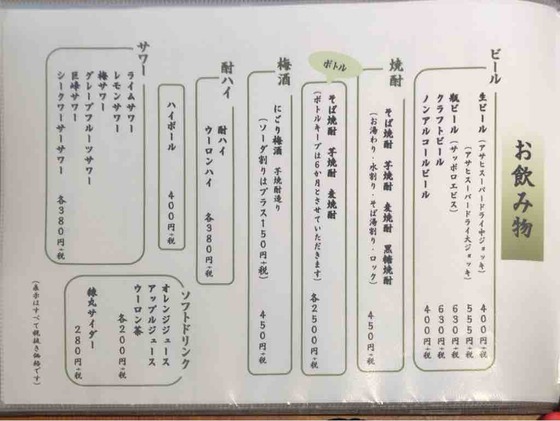 お飲み物
ビール
生ビール(アサヒスーパードライ中ジョッキ) 400円+税
(アサヒスーパードライ大ジョッキ) 555円+税
瓶ビール(サッポロエビス) 630円+税
クラフトビール 630円+税
ノンアルコールビール 400円+税
焼酎
そば焼酎 芋焼酎 麦焼酎 黒糖焼酎
(お湯わり・水割り・そば湯割り・ロック) 450円+税
ボトル
そば焼酎 芋焼酎 麦焼酎
(ボトルキープは6か月とさせていただきます) 各2500円+税
梅酒
にごり梅酒 芋焼酎造り
(ソーダ割りはプラス150円+税) 450円+税
酎ハイ
酎ハイ
ウーロンハイ 各380円+税
ハイボール 400円+税
サワー
ライムサワー
レモンサワー
梅サワー
グレープフルーツサワー
巨峰サワー
シークワーサーサワー 各380円+税
ソフトドリンク
オレンジジュース
アップルジュース
ウーロン茶
各200円+税
サイダー
280円+税
(表示はすべて税抜き価格です)